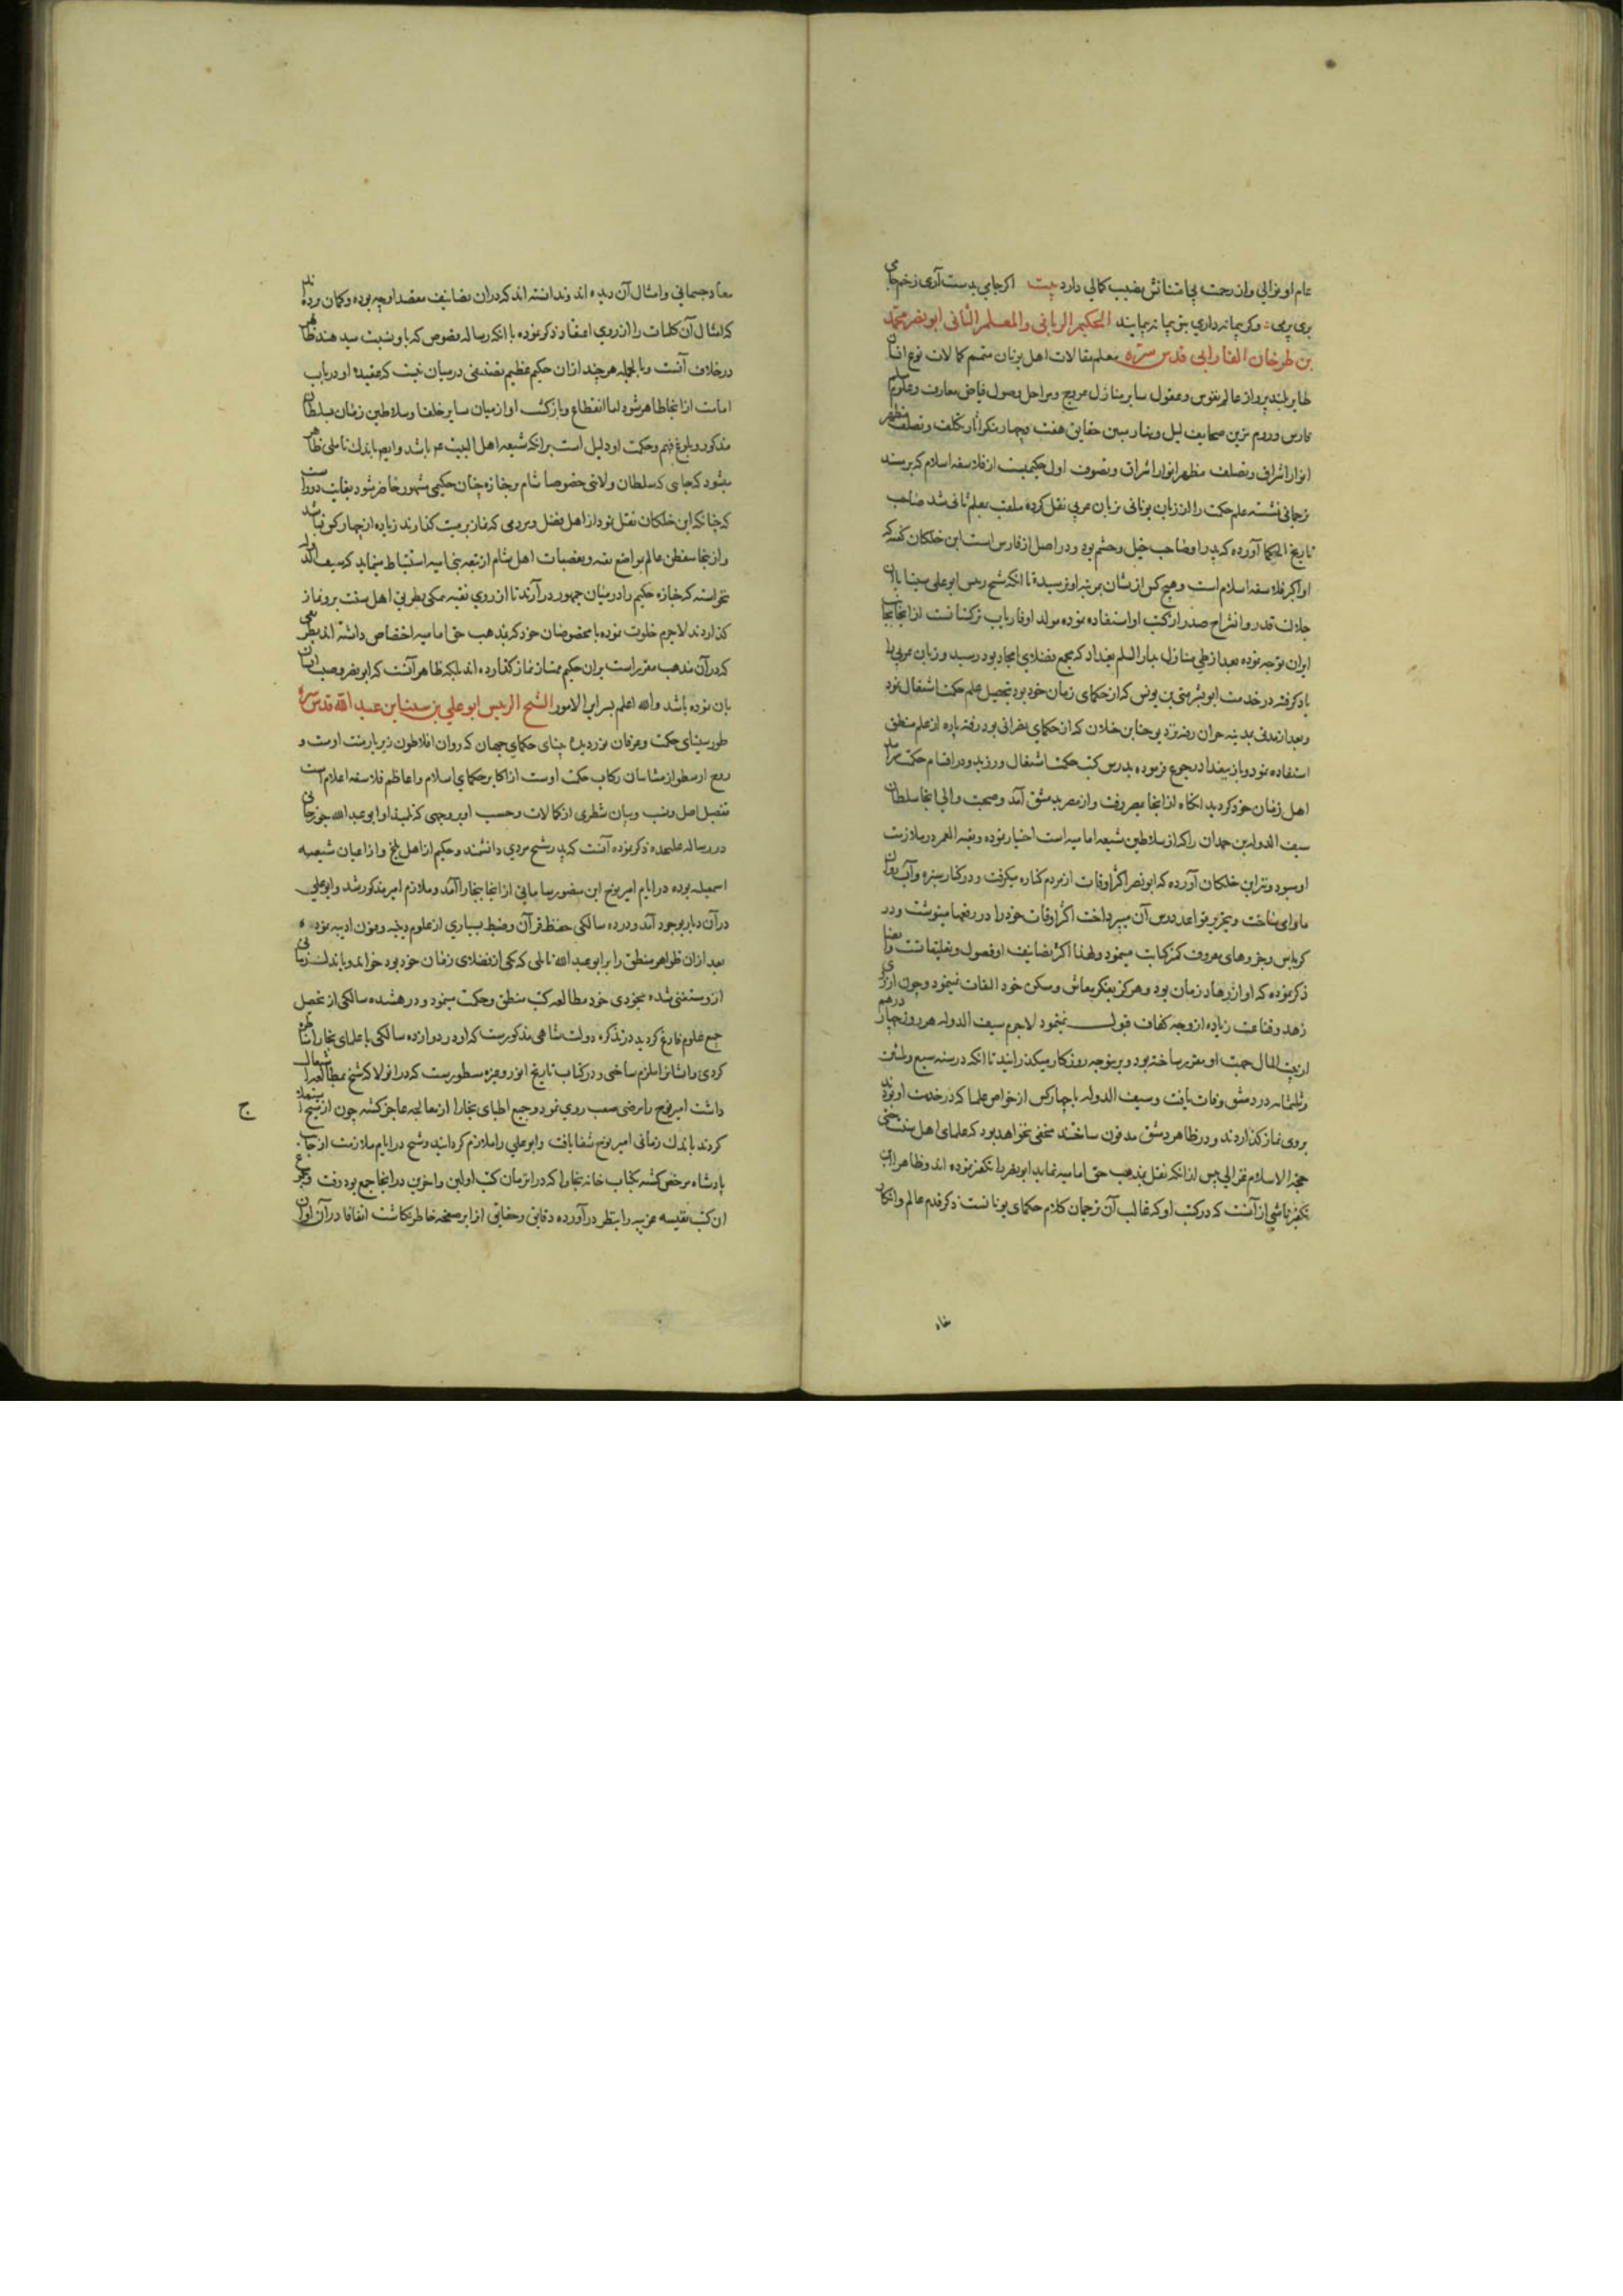 عام او نوالی وان رحت بی امتنانش نصیب کمالی دارد بیت اکر جامی بدست آری زخم جامی
بری بری وکر پیمانه داری بتو پیمانه پیمایند الحکیم الربانی والمعلم الثانی ابونصر محمد
بن طرخان الفارابی قدس سره معلم مقالات اهل یونان متمم کمالات نوع انسان
طایر بلند پرواز عالم نفوس وعقول سایر منازل عروج ومراحل وصول فیاض معارف وعلوم
فارس وروم مزین صحایف لیل ونهار مبین حقایق هفت وچهار منکر آثار تکلف وتصلف مظهر
انوار اشراف وتصلف مظهر انوار اشراق وتصوف اول حکیمیست از فلاسفه اسلام که برمسند
ترجمانی نشسته علم حکمت را از زبان یونانی بزبان عربی نقل کرده ملقب بمعلم ثانی شد صاحب
تاریخ الحکما آورده که پدر او صاحب خیل وحشم بود ودر اصل از فارس است ابن خلکان کفته که
او اکبر فلاسفه اسلام است وهیچ کس از یشان بمرتبه او نرسیده تا انکه شیخ رییس ابو علی سینا با آن
جلالت قدر وانشراح صدر از کتب او استفاده نموده مولد او فاریاب ترکستانست از انجا بجانب
ایران توجه نموده بعد از طی منازل بدار السلم بغداد که مجمع فضلای امجاد بود رسید وزبان عربی را
یاد کرفته در خدمت ابو بشر متی بن یونس که از حکمای زمان خود بود بتحصیل علم حکمت اشتغال نمود
وبعد از مدتی بمدینه حران رفته نزد یوحنا بن خلان که از حکمای نصرانی بود رفته پاره از علم منطق
استفاده نمود وباز ببغداد رجوع نموده بدرس کتب حکمت اشتغال ورزید ودر اقسام حکمت سرآمد
اهل زمان خود کردید انکاه از انجا بمصر رفت واز مصر بدمشق آمد وصحبت والی انجا سلطان
سیف الدوله بن حمدان را که از سلاطین شیعه امامیه است اختیار نموده وبقیه العمر در ملازمت
او بسر برد ونیز ابن خلکان آورده که ابو نصر اکثر اوقات از مردم کناره میکرفت ودر کنار سبزه وآب روان
ماوای ساخت وبتحریر قواعد درس آن میپرداخت اکثر اوقات خود را در رقعها مینوشت ودر
کراریس وجزوهای معروف کمتر کتابت مینمود ولهذا اکثر تصانیف او فصول وتعلیقاتست وایضا
ذکر نموده که او از زهاد زمان بود وهرکز بفکر معاش وسکن خود التفات نمینمود وچون از روی
زهد وقناعت زیاده از وجه کفاف قبول نمینمود لاجرم سیف الدوله هر روز چهار درهم
از بیت المال جهت او مقرر ساخته بود وبرین وجه روزکار میکذرانید تا انکه در سنه سبع وثلثین
وثلثمایه در دمشق وفات یافت وسیف الدوله با چهار کس از خواص علما که در خدمت او بودند
بروی نماز کذاردند ودر ظاهر دمشق مدفون ساختند مخفی نخواهد بود که علمای اهل سنت حتی
حجه الاسلام غزالی پس از انکه نقل مذهب حق امامیه نماید ابو نصر را تکفیر نموده اند وظاهرا این
تکفیر ناشی از آنست که در کتب او که غالب آن ترجمان کلام حکمای یونانست ذکر قدم عالم وانکار
معاد
معاد جسمانی وامثال آن دیده اند وندانسته اند که در ان تصانیف مقصد او چه بوده وکمان برده اند
که امثال آن کلمات را از روی اعتقاد ذکر نموده با انکه رساله فصوص که باو نسبت میدهند ظاهر
در خلاف آنست وبالجمله هرچند از ان حکیم عظیم تصنیفی در میان نیست که عقیده او در باب
امامت از انجا ظاهر شود اما انقطاع وبازکشت او از میان سایر خلفا وسلاطین زمان بسلطان
مذکور وبلوغ فهم وحکمت او دلیل است برانکه شیعه اهل البیت عم باشد وایضا باندک تاملی ظاهر
میشود که جای که سلطان ولایتی خصوصا شام بر جنازه چنان حکیمی مشهور حاضر شود بغایت دور است
که چنانکه ابن خلکان نقل نمود از اهل فضل ومردمی که نماز برمیت کذارند زیاده از چهار کس نباشد
واز نجا متفطن عالم بمواضع تقیه وتعصبات اهل شام از تبعه بنی امیه استنباط مینماید که سیف الدوله
نخواسته که جنازه حکیم را در میان جمهور در آرند تا از روی تقیه ممکن بطریق اهل سنت برو نماز
کذاردند لاجرم خلوت نموده با مخصوصان خود که بمذهب حق امامیه اختصاص داشته اند بطریقی
که در آن مذهب مقرر است بران حکیم ممتاز نماز کذارده اند بلکه ظاهر آنست که ابو نصر وصیت
بان نموده باشد والله اعلم بسرایر الامور الشیخ الرییس ابو علی بن سینا بن عبد الله قدس سره
طور سینای حکمت وعرفان نور دیده بینای حکمای جهان که روان افلاطون زیر بار منت اوست و
روح ارسطو از مشاییان رکاب حکمت اوست از اکابر حکمای اسلام واعاظم فلاسفه اعلام است
تفصیل اصل ونسب وبیان شطری از کمالات وحسب او بروجهی که تلمیذ او ابو عبد الله جوزجانی
در رساله علیحده ذکر نموده آنست که پدر شیخ مردی دانشمند وحکیم از اهل بلخ واز اعیان شیعه
اسمعیلیه بوده در ایام امیر نوح ابن منصور سامانی از انجا ببخارا آمد وملازم امیر مذکور شد وابو علی
در آن دیار بوجود آمد ودر ده سالکی حفظ قرآن وضبط بسیاری از علوم دینیه وفنون ادبیه نمود
بعد از ان ظواهر منطق را بر ابو عبد الله ناتلی که یکی از فضلای زمان خود بود خواند وباندک زمانی
از و مستغنی شده بخودی خود مطالعه کتب منطق وحکمت مینمود ودر هشده سالکی از تحصیل
جمیع علوم فارغ کردید در تذکره دولت شاهی مذکورست که او در دوازده سالکی با علمای بخارا مناظره
کردی وایشانرا ملزم ساختی ودر کتاب تاریخ ابوز وغیره مسطورست که در انولا که شیخ بمطالعه اشتغال
داشت امیر نوح را مرضی صعب روی نمود وجمیع اطبای بخارا از معالجه عاجز کشته چون از شیخ استمداد
ج
کردند باندک زمانی امیر نوح شفا یافت وابو علی را ملازم کردانید وشیخ در ایام ملازمت از جانب
پادشاه مرخص کشته بکتاب خانه بخارا که در انزمان کتب اولین واخرین در انجا جمع بود رفت
ان کتب نفیسه غریبه را بنظر در آورده دقایق وحقایق از ابر صفحه خاطر نکاشت اتفاقا در آن اوان